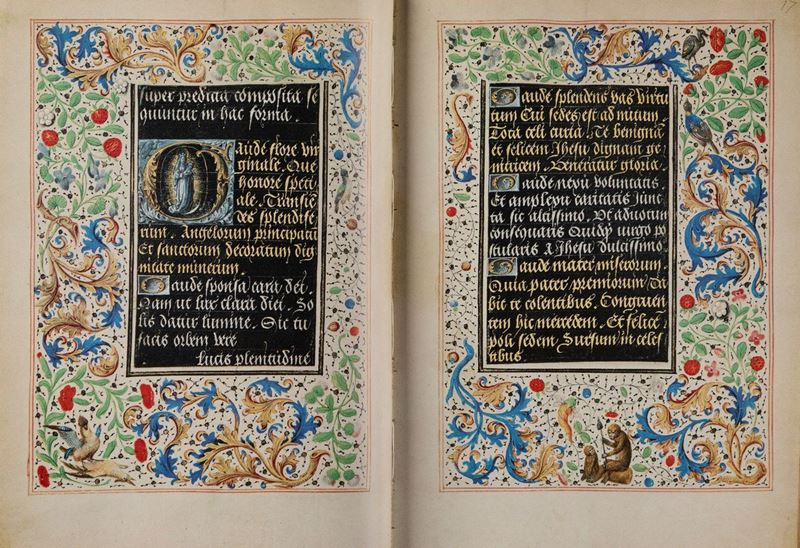 super predicta composita se
quuntur in hac forma.
Gaude flore vir
ginale. Que
honore speci
ale. Transcē
des splendife
rum. Angelorum principatū
Et sanctorum decoratum dig
nitate munerum.
Gaude sponsa cara dei.
Nam ut lux clara diei. So
lis datur lumine. Sic tu
facis orbem vere
Lucis plenitudine
17
Gaude splendens vas virtu
tum Cui sedes est ad nutum.
Tota celi curia. Te benignā
et felicem Jhesu dignam ge
nitricem. Veneratur gloria.
Gaude nexu voluntatis.
Et amplexu caritatis Junc
ta sic altissimo. Ut ad votum
consequaris Quidq̄ virgo po
stularis A Jhesu dulcissimo.
Gaude mater miserorum
Quia pater premiorum Da
bit te colentibus. Congruen
tem hic mercedem. Et felicē
poli sedem Sursum in celes
tibus